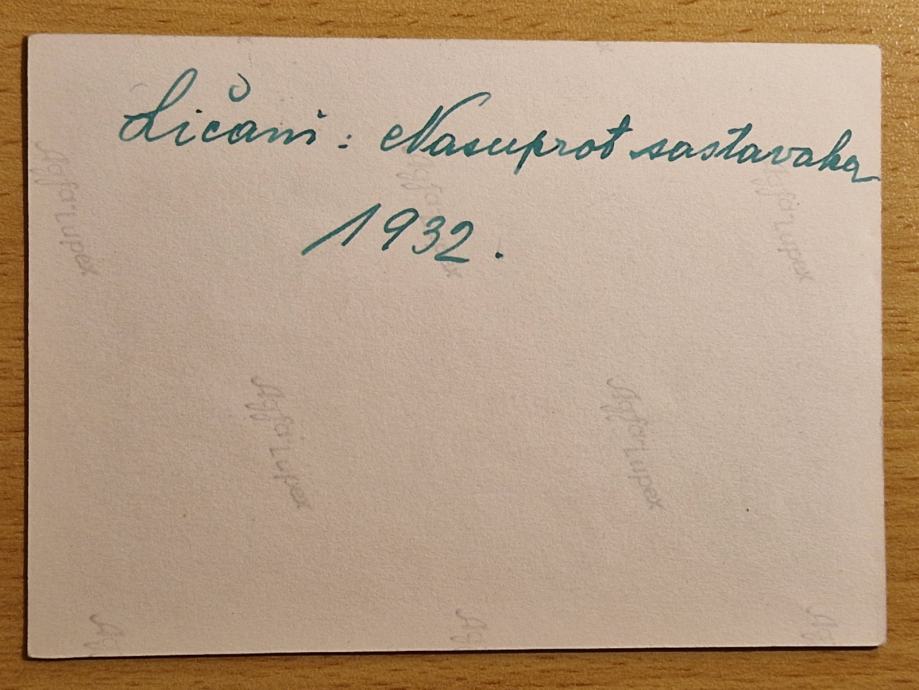 Ličani: Nasuprot sastavaka
1932.
Agfa Lupex
Agfa Lupex
Agfa Lupex
Agfa Lupex
Agfa Lupex
Ag
Ag
Ag